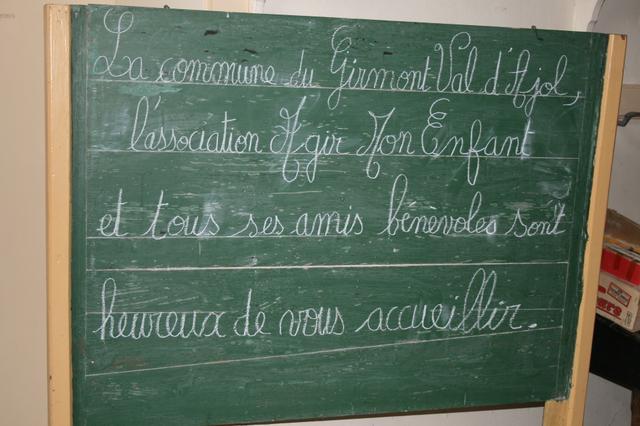 La commune du Girmont Val d'Ajol,
l'association Agir Mon Enfant
et tous ses amis bénévoles sont
heureux de vous accueillir.